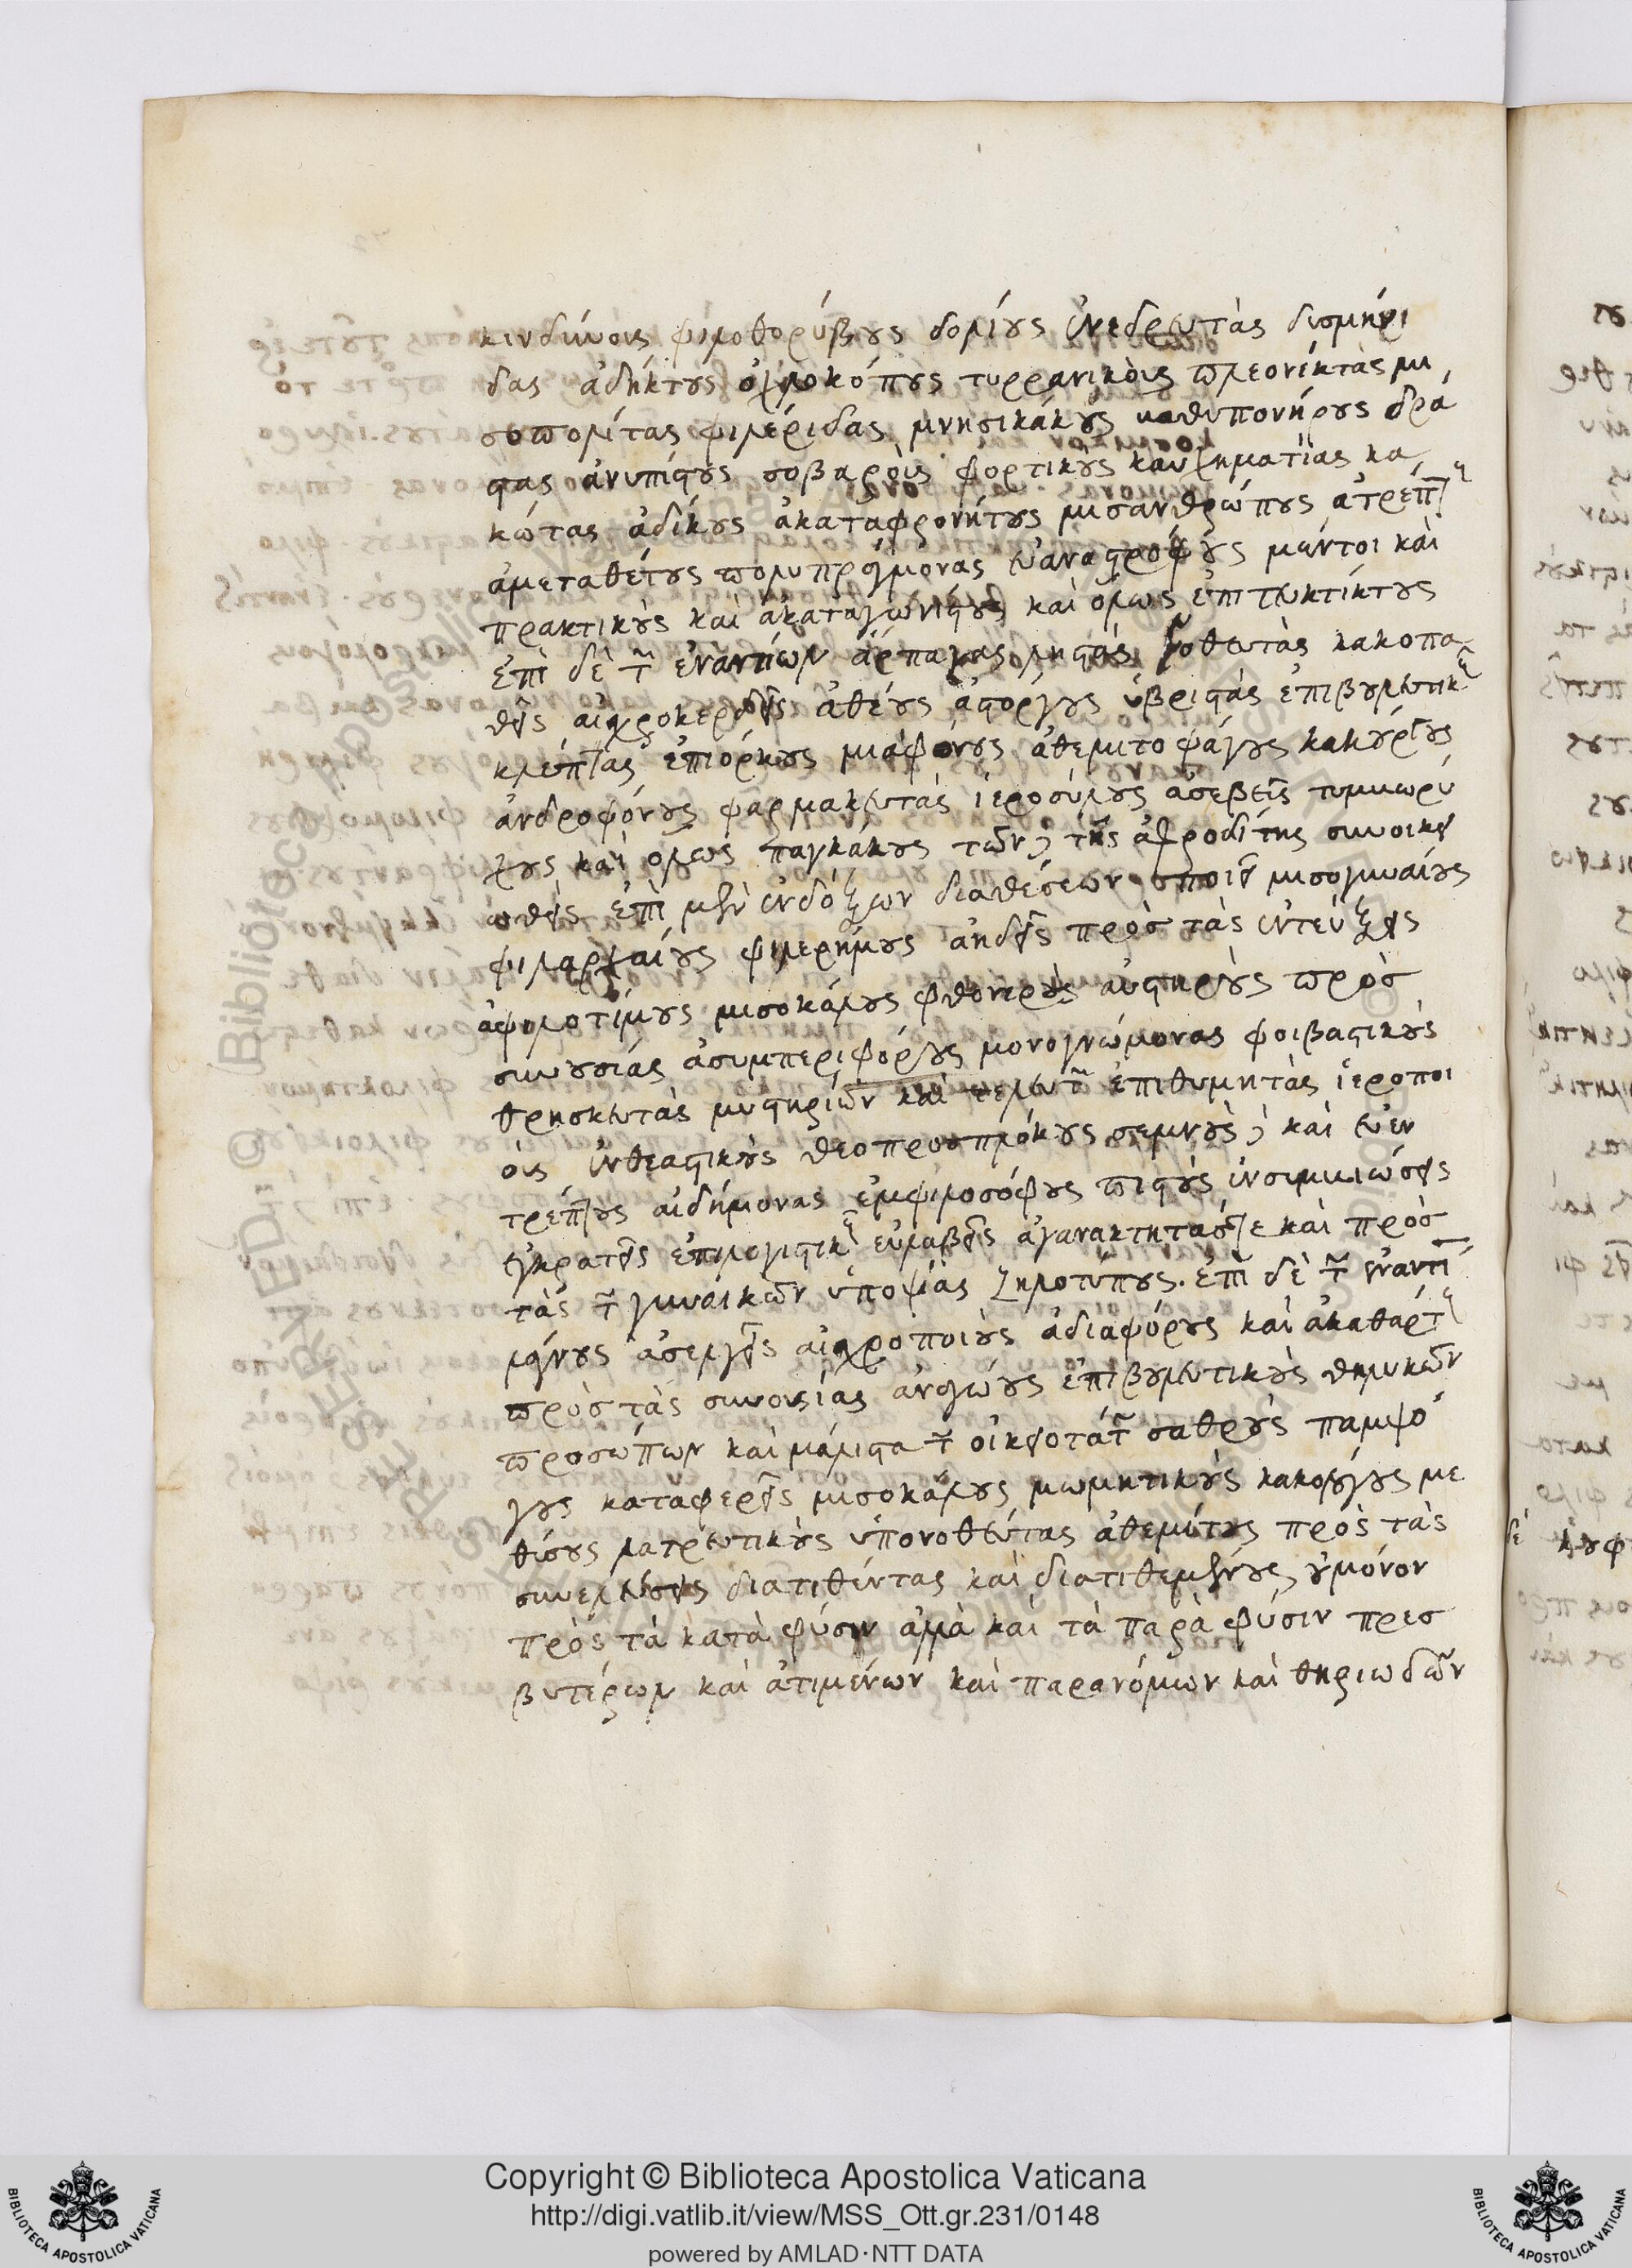 κινδύνους φιλοθορύβους δολίους ἐνεδρευτὰς δυσμήνι
δας ἀδήκτους ὀχλοκόπους τυρρανικοὺς πλεονέκτας μι
σοπολίτας φιλέριδας μνησικάκους βαθυπονήρους δρά
στας ἀνυπίστους σοβαροὺς φορτικοὺς καυχηματίας κα
κώτας ἀδίκους ἀκαταφρονήτους μισανθρώπους ἀτρέπτους
ἀμεταθέτους πολυπράγμονας εὐαναστρόφους μέντοι καὶ
πρακτικοὺς καὶ ἀκαταγωνίστους καὶ ὅλως ἐπιτευκτίκτους
ἐπὶ δὲ τῶν ἐναντίων ἅρπαγας λῃστὰς νοθευτὰς κακοπα
θεῖς αἰσχροκερδεῖς ἀθέους ἀστόργους ὑβριστὰς ἐπιβουλευτικοὺς
κλέπτας ἐπιόρκους μιαιφόνους ἀθεμιτοφάγους κακούργους
ἀνδροφόνους φαρμακευτὰς ἱεροσύλους ἀσεβεῖς τυμβωρύ
χους καὶ ὅλως παγκάκους τῷ δὲ τῆς ἀφροδίτης συνοικει
ωθεὶς ἐπὶ μὲν ἐνδόξων διαθέσεων ποιεῖ μισογυναίους
φιλαρχαίους φιλερήμους ἀηδεῖς πρὸς τὰς ἐντεύξεις
ἀφιλοτίμους μισοκάλους φθονεροὺς αὐστηροὺς πρὸς
συνουσίας ἀσυμπεριφόρους μονογνώμονας φοιβαστικοὺς
θρησκευτὰς μυστηρίων καὶ τελετῶν ἐπιθυμητὰς ἱεροποι
οὺς ἐνθεαστικοὺς θεοπροσπλόκους σεμνοὺς δὲ καὶ εὐεν
τρέπτους αἰδήμονας ἐμφιλοσόφους πιστοὺς ἐν συμβιώσεις
ἐγκρατεῖς ἐπιλογιστικοὺς εὐλαβεῖς ἀγανακτητάς τε καὶ πρὸς
τὰς τῶν γυναικῶν ὑποψίας ζηλοτύπους. ἐπὶ δὲ τῶν ἐναντίων
λάγνους ἀσελγεῖς αἰσχροποιοὺς ἀδιαφόρους καὶ ἀκαθάρτους
πρὸς τὰς συνουσίας ἀνάγνους ἐπιβουλευτικοὺς θηλυκῶν
προσώπων καὶ μάλιστα τῶν οἰκειοτάτων σαθροὺς παμψό
γους καταφερεῖς μισοκάλους μωμητικοὺς κακολόγους με
θύσους λατρευτικοὺς ὑπονοθεύτας ἀθεμίτους πρὸς τὰς
συνελεύσεις διατιθέντας καὶ διατιθεμένους οὐ μόνον
πρὸς τὰ κατὰ φύσιν ἀλλὰ καὶ τὰ παρὰ φύσιν πρεσ
βυτέρων καὶ ἀτιμένων καὶ παρανόμων καὶ θηριωδῶν
Copyright © Biblioteca Apostolica Vaticana
http://digi.vatlib.it/view/MSS_Ott.gr.231/0148
powered by AMLAD·NTT DATA